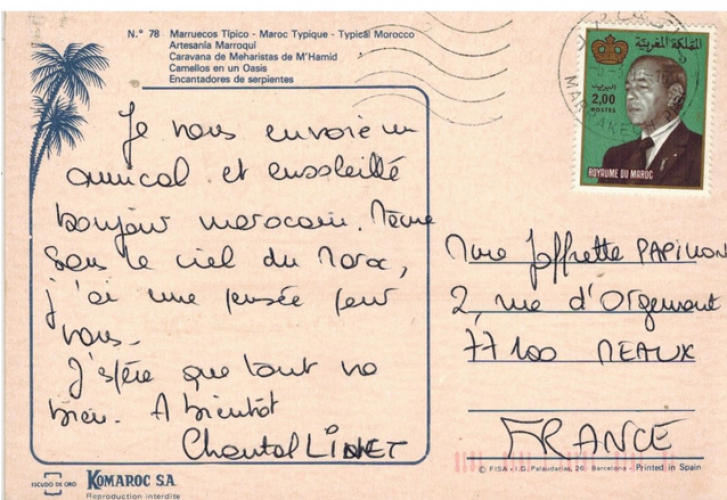 N.° 78 Marruecos Típico - Maroc Typique - Typical Morocco
Artesanía Marroquí
Caravana de Meharistas de M'Hamid
Camellos en un Oasis
Encantadores de serpientes
Je vous envoie un
amical et ensoleillé
bonjour marocain. Même
sous le ciel du Maroc,
j'ai une pensée pour
vous.
J'espère que tout va
bien. A bientôt
Chantal LINET
2,00
POSTES
ROYAUME DU MAROC
المملكة المغربية
البريد
Mme Joffrette PAPILLON
2, rue d'Orgemont
77100 MEAUX
FRANCE
ESCUDO DE ORO
KOMAROC S.A.
Reproduction interdite
© FISA - I.G. Palaudarias, 26 - Barcelona - Printed in Spain